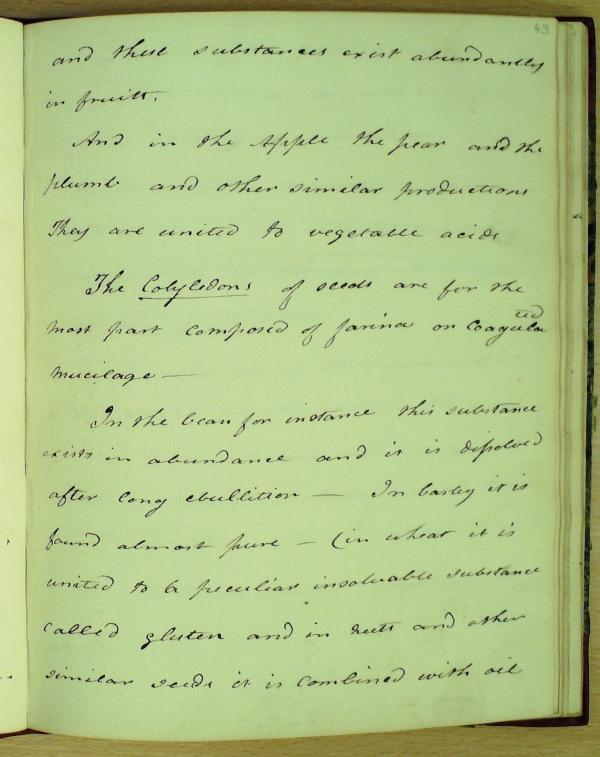 43
and these substances exist abundantly
in fruits.
And in the Apple the pear and the
plumb and other similar productions
They are united to vegetable acids
The Cotyledons of seeds are for the
most part composed of farina or Coagula
ted
mucilage —
In the bean for instance this substance
exists in abundance and it is dissolved
after long ebullition — In barley it is
found almost pure — (in wheat it is
united to a peculiar insoluable substance
called gluten and in nuts and other
similar seeds it is combined with oil